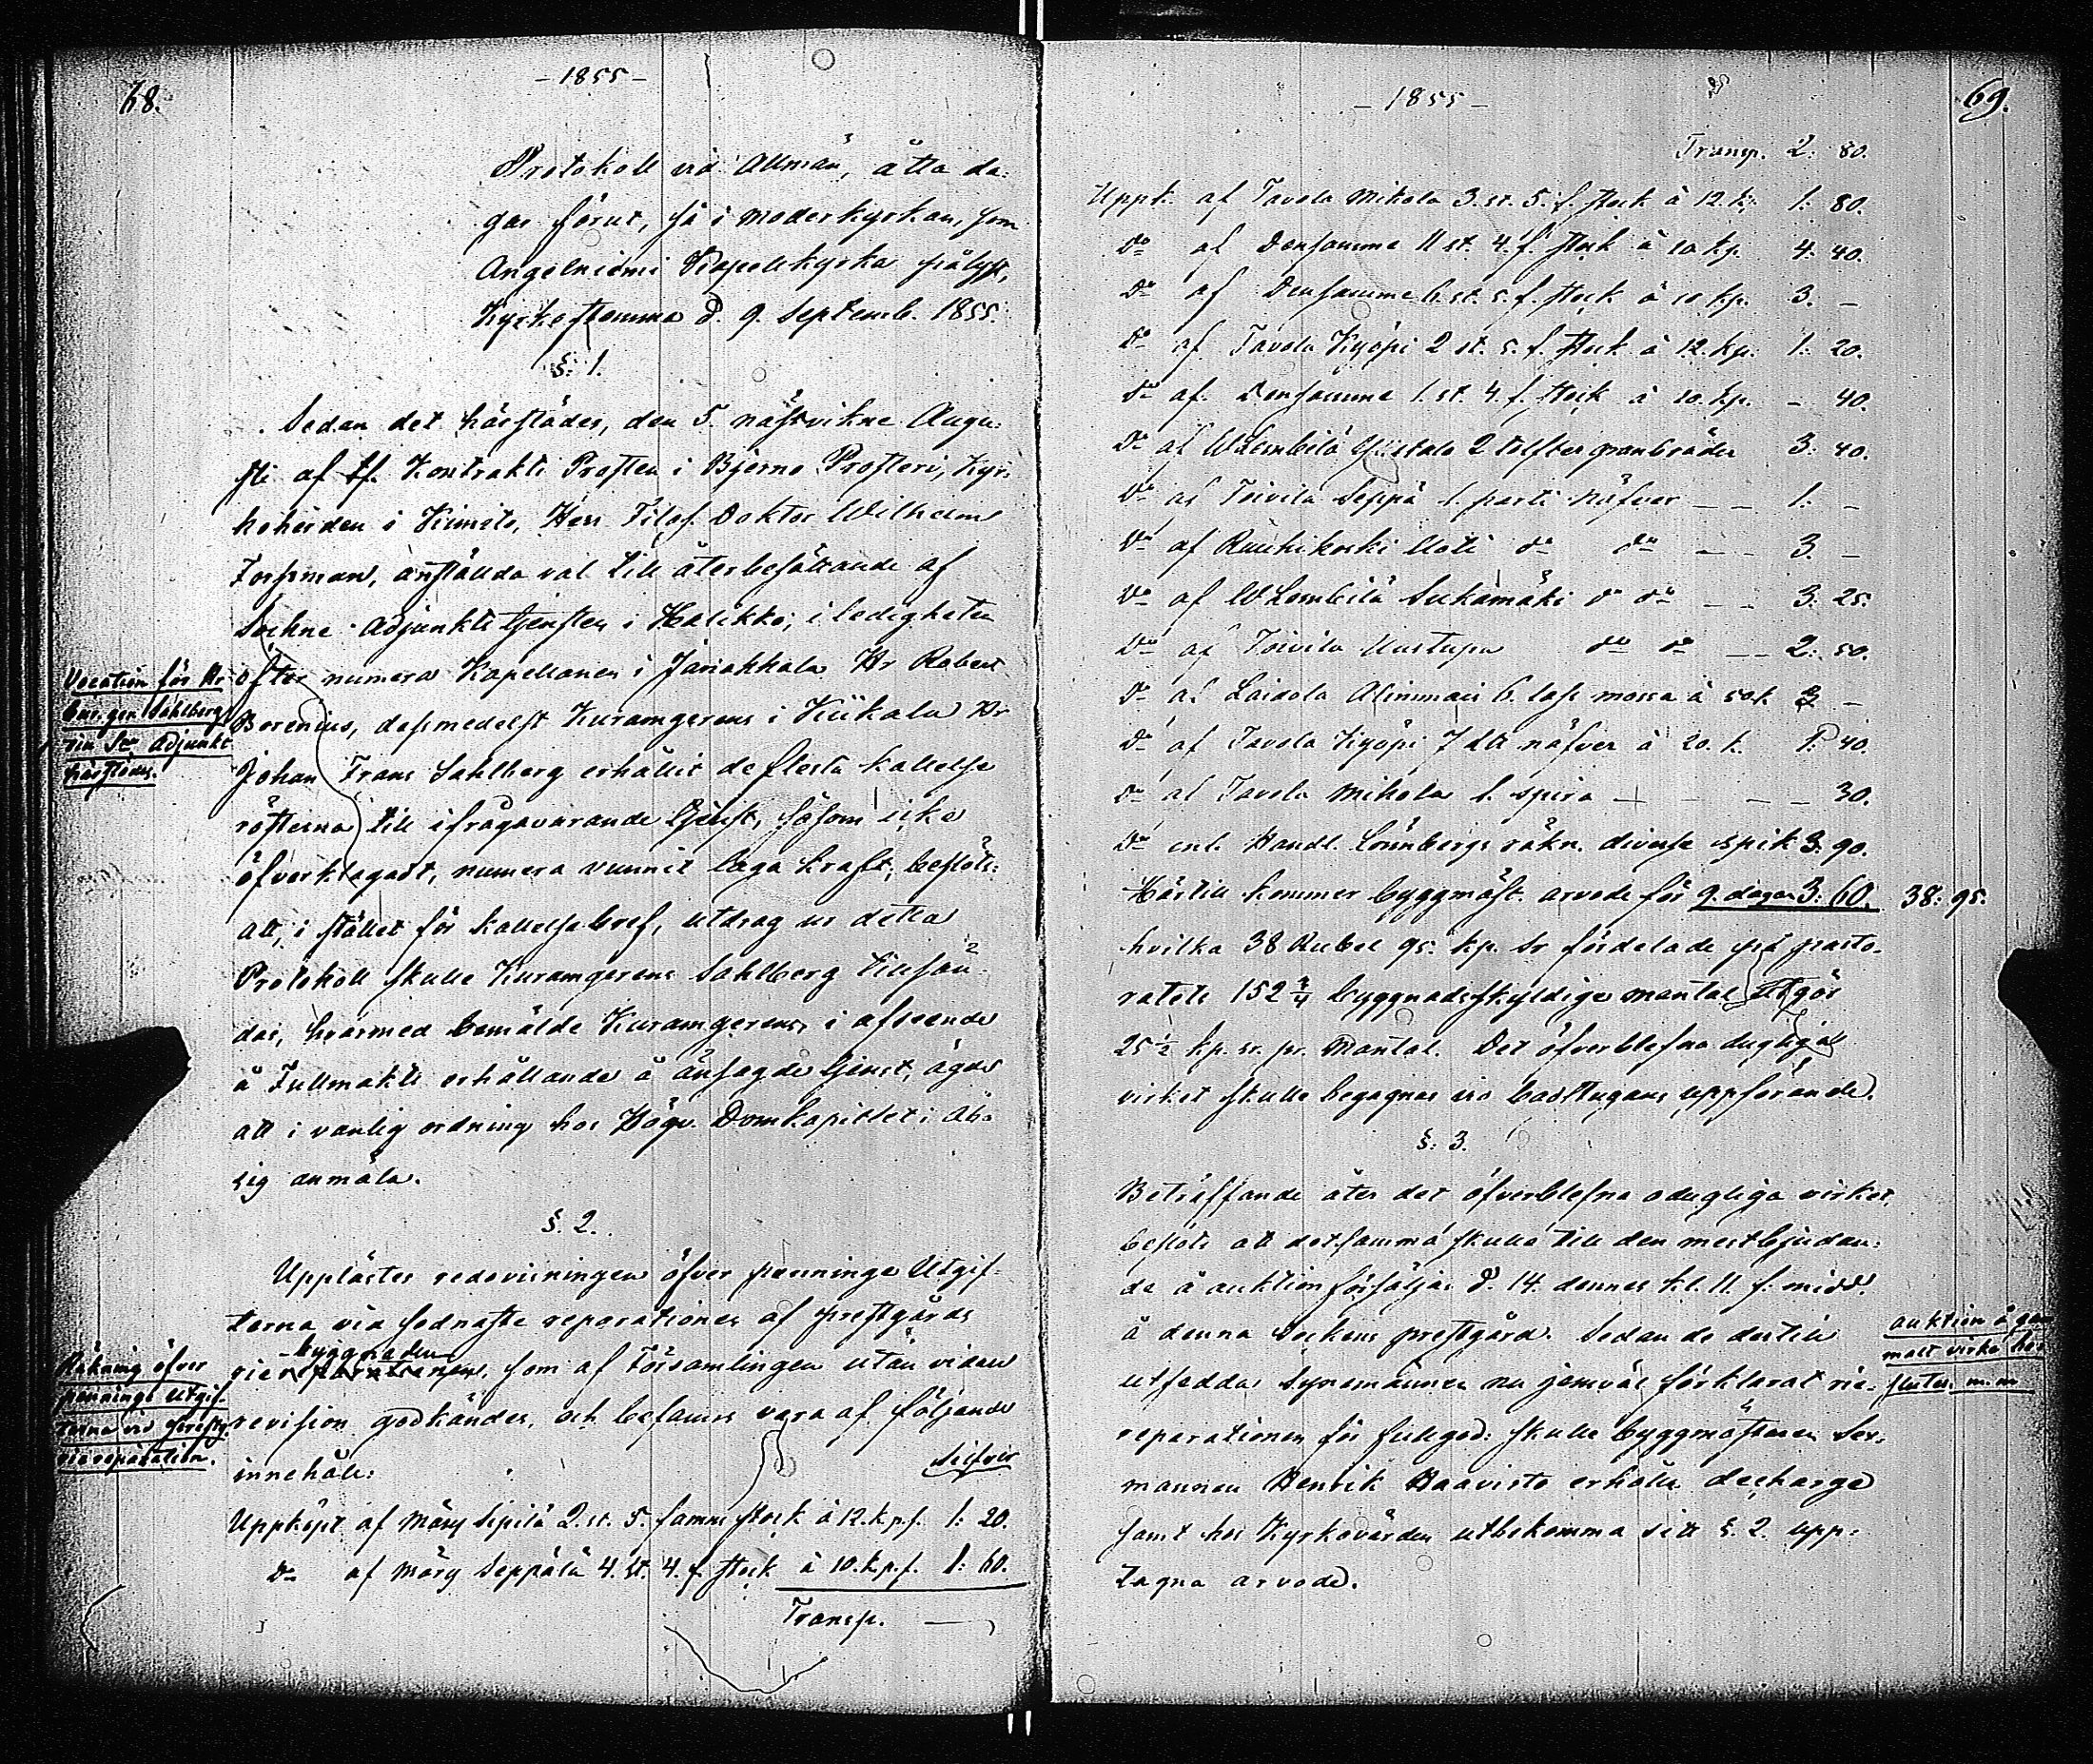 68.
- 1855 -
Protokoll vid Allmän, åtta da:
gar förut, så i moderkyrkan, som
Angelniemi Kapellkyrka pålyst,
Kyrkostämma d. 9. Septemb. 1855.
§. 1.
Sedan det härstädes, den 5. nästvikne Augu:
sti af tf. Kontrakts Prosten i Bjerno Prosteri, Kyr:
koherden i Kimito, Herr Filos. Doktor Wilhelm
Forssman, anställda val till återbesättande af
Sockne-Adjunkts tjensten i Halikko, i ledigheten
Vocation för Hr
efter numera Kapellanen i Janakkala Hr Robert
Cur. ger. Sahlberg
Borenius, dessmedelst Kuramgerens i Kiikala Hr
till Sne Adjunkt
härstädes.
Johan Frans Sahlberg erhållit de flesta kallelse
rösterna till ifrågavarande tjenst, såsom icke
öfverklagadt, numera vunnit laga kraft; beslöts:
att, i stället för kallelsebref, utdrag ur detta
Protokoll skulle Kuramgerens Sahlberg tillsän-
das, hvarmed bemälde Kuramgerens i afseende
å Fullmakts erhållande å ansagde tjenst, ägde
att i vanlig ordning hos Högv. Domkapitlet i Åbo
sig anmäla.
§. 2.
Upplästes redovisningen öfver penninge Utgif-
terna vid sednaste reparationen af prestgårds
byggnaden
Räkning öfver
rie reparationen, som af Församlingen utan vidare
pennings utgif-
terna vid prestg.
revision godkändes, och befanns vara af följande
rie reparation.
innehåll:
Silfver
Uppköpt af Märy Sipilä 2. st. 5. famns stock à 12. k.p.s. 1: 20.
Do af Märy Seppälä 4. st. 4. f. stock à 10. k.p.s. 1: 60.
Transp. —
69.
- 1855 -
Transp. 2: 80.
Uppk. af Tavola Mikola 3. st. 5. f. stock à 12. k. 1: 80.
Do af Densamme 11 st. 4. f. stock à 10 kp. 4: 40.
Do af Densamme 6. st. 5. f. stock à 10. kp. 3. –
Do af Tavola Kyöpi 2 st. 5. f. stock à 12. kp. 1: 20.
Do af Densamme 1. st. 4. f. stock à 10. kp. – 40.
Do af WLembilä Yistalo 2 tolfter granbräder 3: 40.
Do af Toivila Seppä 1. parti näfver – – 1. –
Do af Ruuhikoski Uoti do do – – 3. –
Do af WLembilä Sukamäki do do – – 3: 25.
Do af Toivila Uustupa do do – – 2: 50.
Do af Laidola Alimmais 6. lass mossa à 50 k. 3 –
Do af Tavola Kyöpi 7 Ltt näfver à 20. k. 1: 40.
Do af Tavola Mikola 1. spira – – – – 30.
Do enl. Handl. Lönnbergs räkn. diverse spik 3. 90.
Härtill kommer byggmäst. arvode för 9. dagar 3: 60. 38: 95.
hvilka 38 Rubel 95. kp. Sr fördelade på pasto-
ratets 152 3/4 byggnadsskyldige mantal utgör
25 1/2 kp. sr. pr. Mantal. Det öfverblefna dugliga
virket skulle begagnas vid badstugans uppförande.
§. 3.
Beträffande åter det öfverblefna odugliga virket,
beslöts att detsamma skulle till den mestbjudan:
de å auktion försäljas d. 14. dennes kl. 11. f. midd.
å denna Sockens prestgård. Sedan de dertill
auktion å gam
malt virke be
utsedda synemännen nu jemväl förklarat rie-
slutes. m. m
reparationen för fullgod: skulle byggmästaren Ser-
mannen Henrik Haavisto erhålla decharge
samt hos Kyrkovärden utbekomma sitt §. 2. upp:
tagna arvode.